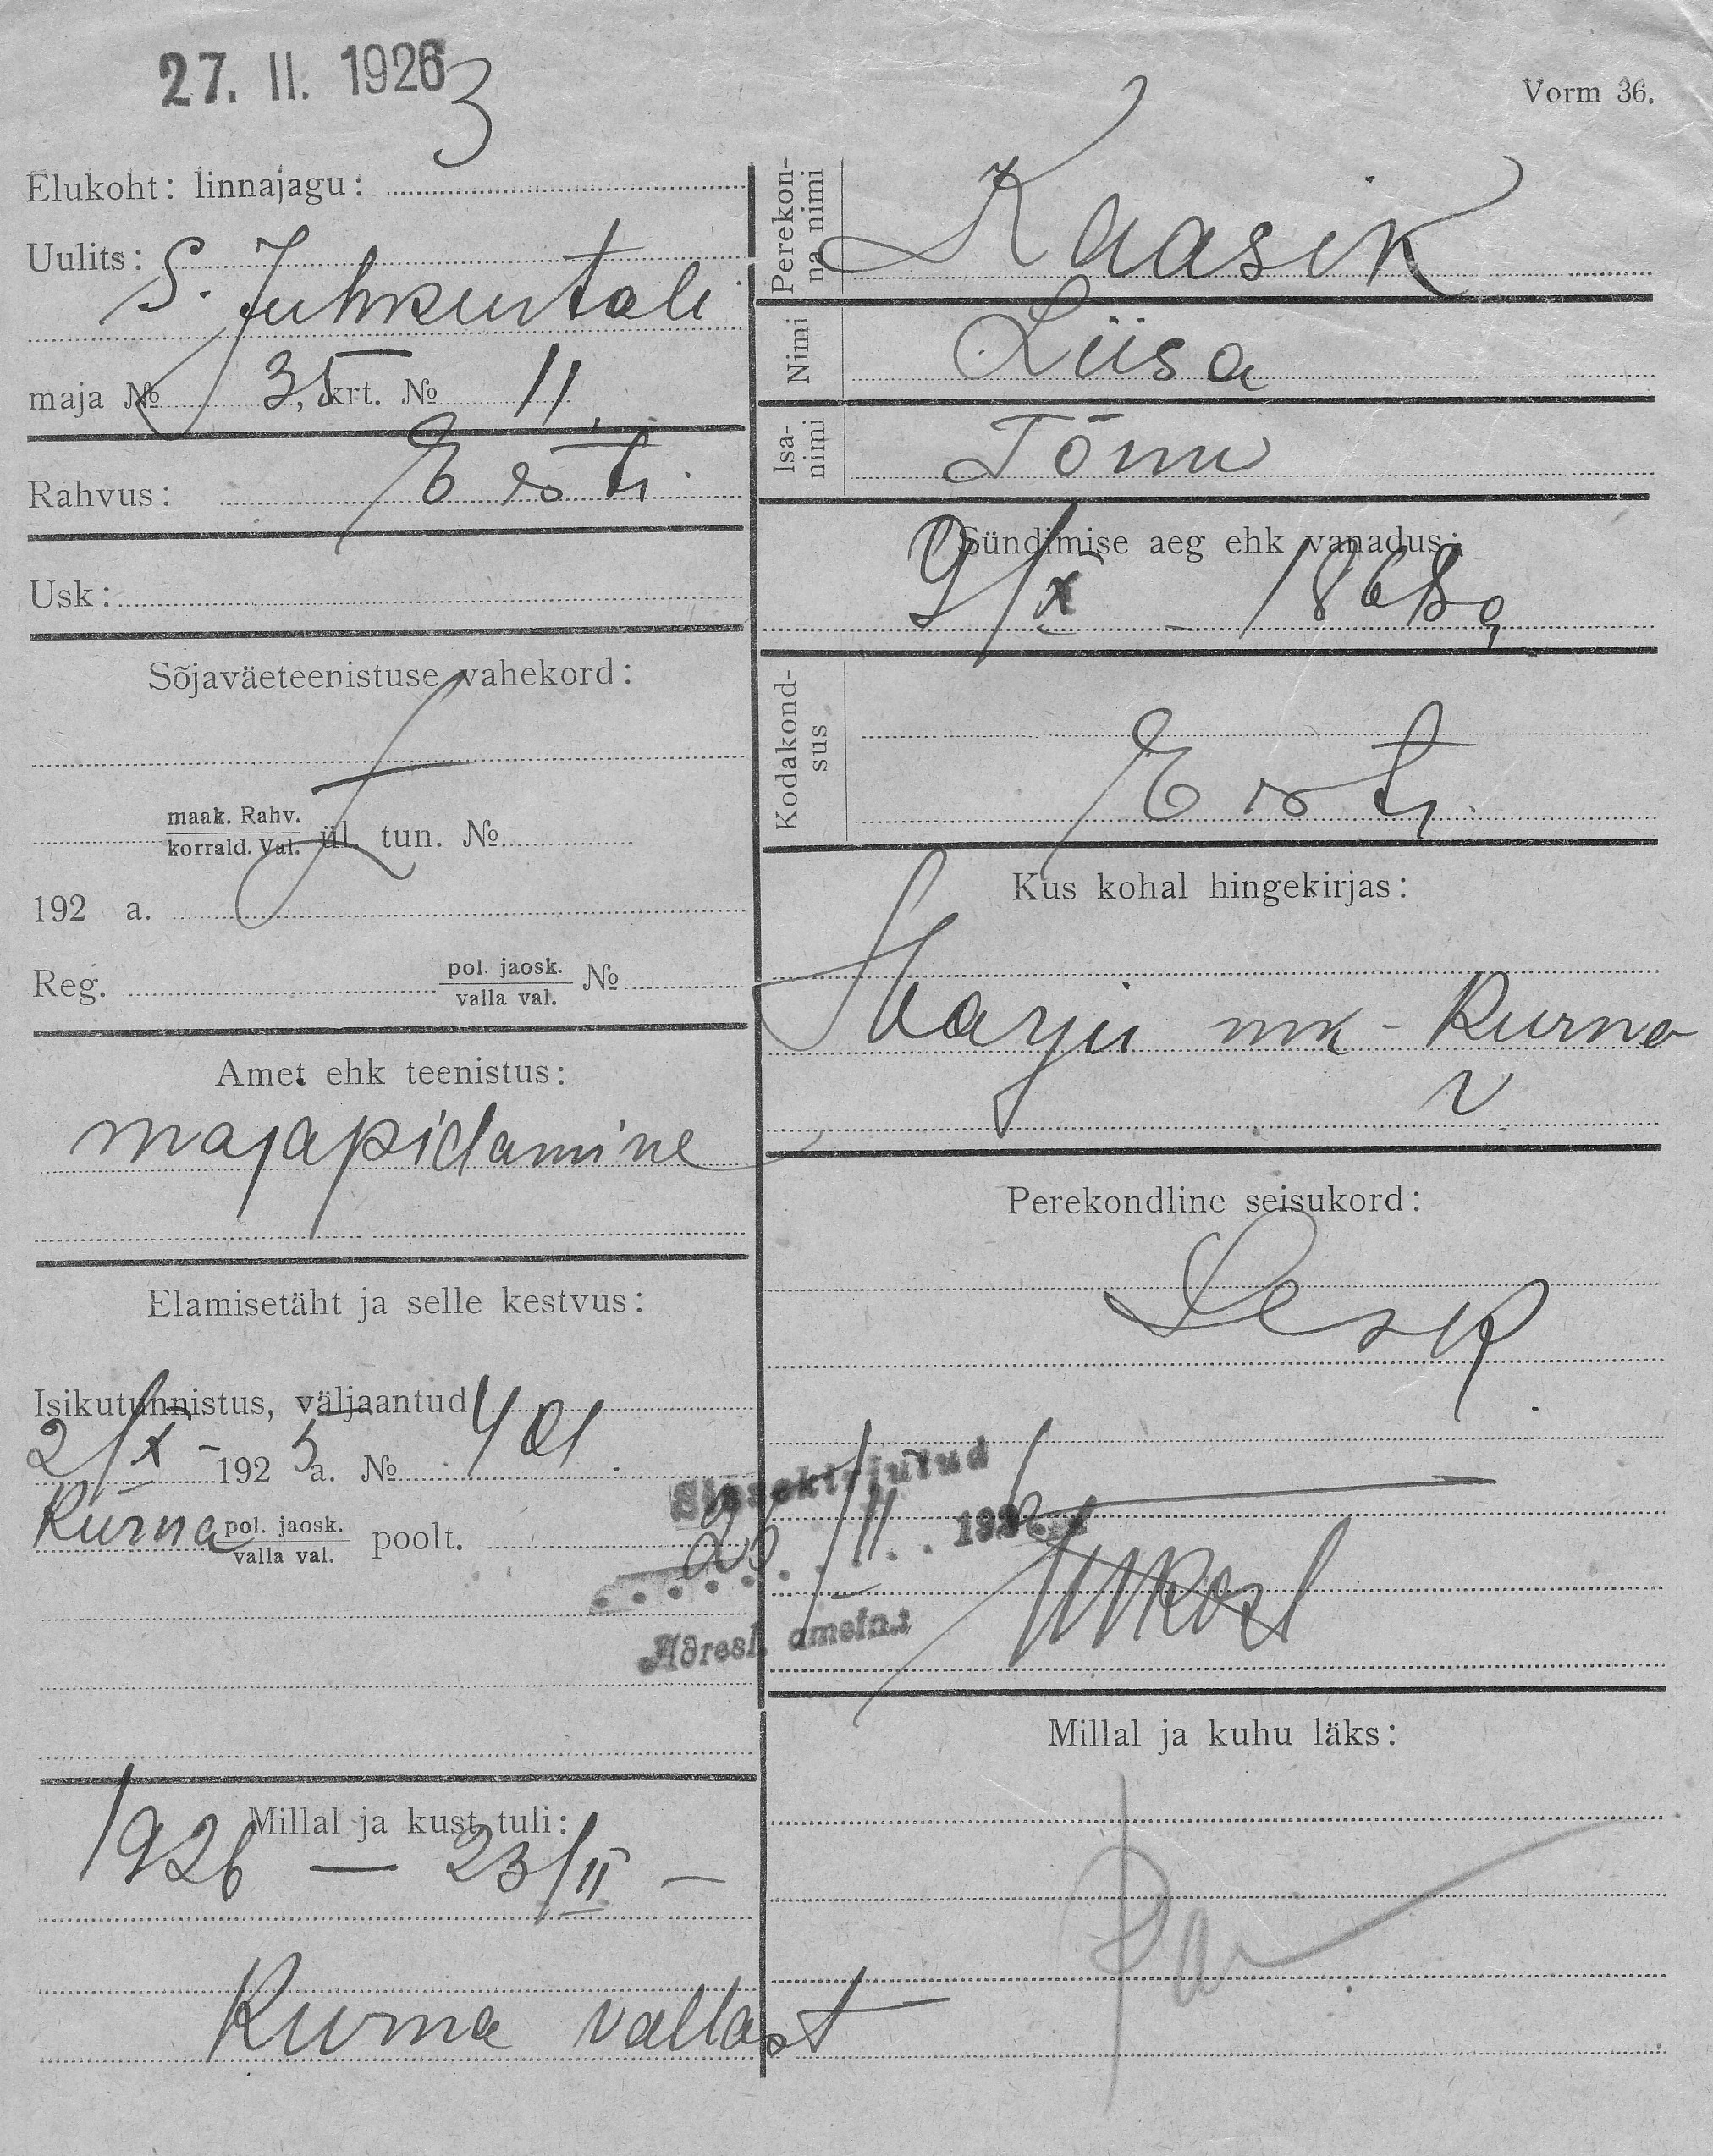 27. II. 1926
3
Vorm 36.
Elukoht: linnajagu:
Uulits: S. Juhkentali
maja № 35 krt. № 11
Rahvus: Eesti
Usk:
Sõjaväeteenistuse vahekord:
maak. Rahv.
korrald. Val. ül. tun. №
192 a.
Reg. pol. jaosk.
valla val. №
Amet ehk teenistus:
majapidamine
Elamisetäht ja selle kestvus:
Isikutunnistus, väljaantud
2/X - 1925 a. № 401
Kurna pol. jaosk.
valla val. poolt.
Millal ja kust tuli:
1926 — 23/II —
Kurna vallast
Perekonna nimi
Kaasik
Nimi
Liisa
Isanimi
Tõnu
Sündimise aeg ehk vanadus:
9/X - 1868 a
Kodakondsus
Eesti
Kus kohal hingekirjas:
Harju mk - Kurna
v
Perekondline seisukord:
Lesk
Sissekirjutud
/II 192
Adresl. ametn.:
Millal ja kuhu läks: